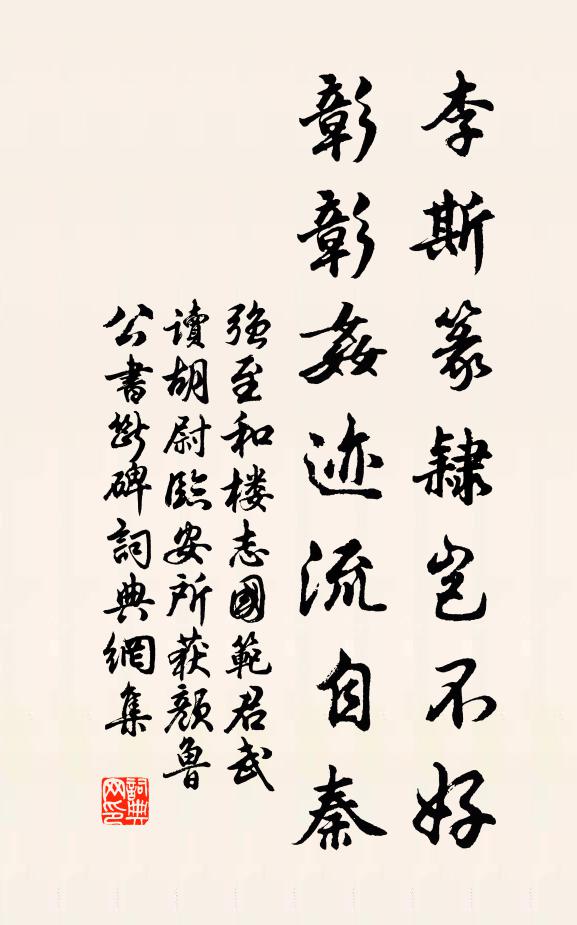 李斯篆隸岂不好
彰彰姦迹流自秦
强至和楼志國範君武
讀胡尉臨安所获顔魯
公書斷碑詞典網集
詞典
网印